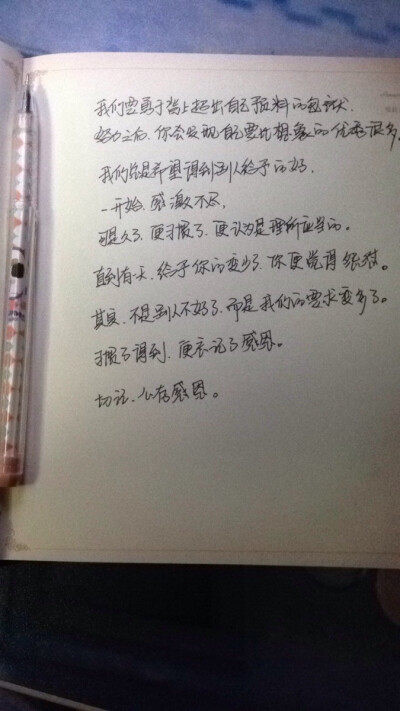 我们要勇于背上超出自己预料的包袱，
努力之后，你会发现自己要比想象的优秀很多
我们总是希望得到别人给予的好，
一开始，感激不尽，
可是久了，便习惯了，便认为是理所应当的。
直到有一天，给予你的变少了，你便觉得怨怼。
其实，不是别人不好了，而是我们的要求变多了。
习惯了得到，便忘记了感恩。
切记，心存感恩。